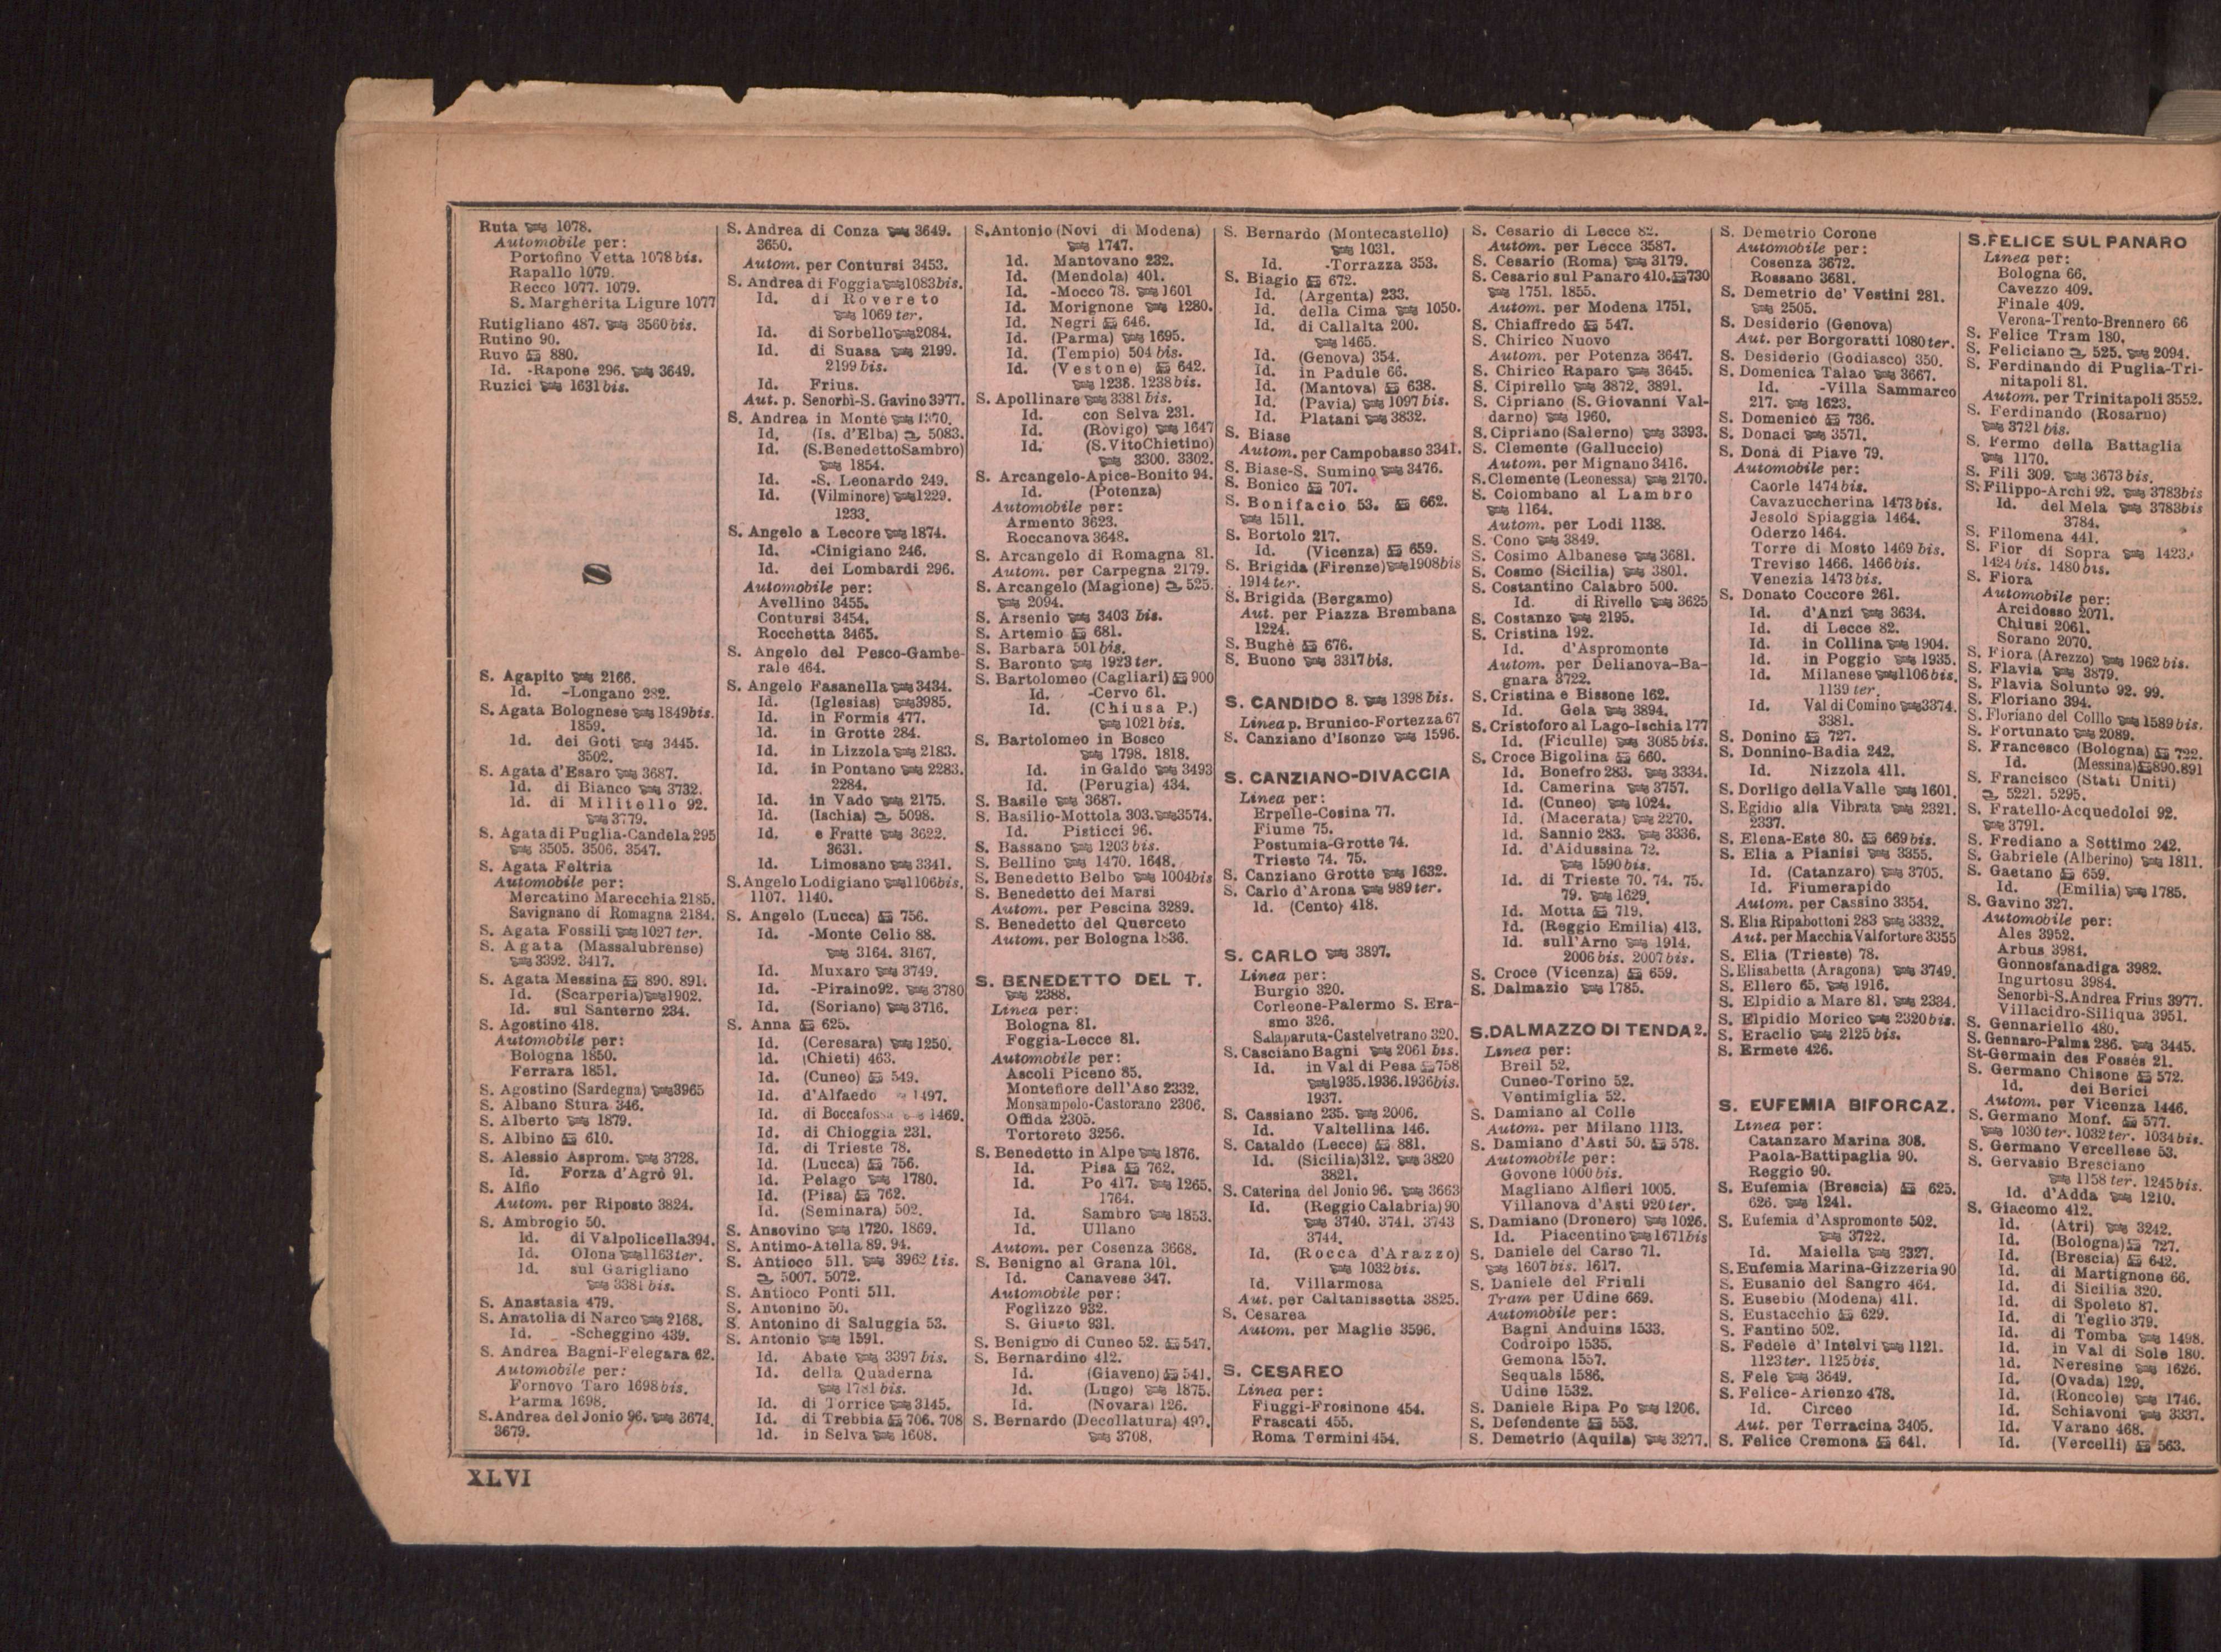 Ruta 1078.
Automobile per:
Portofino Vetta 1078 bis.
Rapallo 1079.
Recco 1077. 1079.
S. Margherita Ligure 1077
Rutigliano 487. 3560 bis.
Rutino 90.
Ruvo 880.
Id. -Rapone 296. 3649.
Ruzici 1631 bis.
S
S. Agapito 2166.
Id. -Longano 282.
S. Agata Bolognese 1849 bis.
1859.
Id. dei Goti 3445.
3502.
S. Agata d'Esaro 3687.
Id. di Bianco 3732.
Id. di Militello 92.
3779.
S. Agata di Puglia-Candela 295
3505. 3506. 3547.
S. Agata Feltria
Automobile per:
Mercatino Marecchia 2185.
Savignano di Romagna 2184.
S. Agata Fossili 1027 ter.
S. Agata (Massalubrense)
3392. 3417.
S. Agata Messina 890. 891.
Id. (Scarperia) 1902.
Id. sul Santerno 234.
S. Agostino 418.
Automobile per:
Bologna 1850.
Ferrara 1851.
S. Agostino (Sardegna) 3965
S. Albano Stura 346.
S. Alberto 1879.
S. Albino 610.
S. Alessio Asprom. 3728.
Id. Forza d'Agrò 91.
S. Alfio
Autom. per Riposto 3824.
S. Ambrogio 50.
Id. di Valpolicella 394.
Id. Olona 1163 ter.
Id. sul Garigliano
3381 bis.
S. Anastasia 479.
S. Anatolia di Narco 2168.
Id. -Scheggino 439.
S. Andrea Bagni-Felegara 62.
Automobile per:
Fornovo Taro 1698 bis.
Parma 1698.
S. Andrea del Jonio 96. 3674.
3679.
S. Andrea di Conza 3649.
3650.
Autom. per Contursi 3453.
S. Andrea di Foggia 1083 bis.
Id. di Rovereto
1069 ter.
Id. di Sorbello 2084.
Id. di Suasa 2199.
2199 bis.
Id. Frius.
Aut. p. Senorbì-S. Gavino 3977.
S. Andrea in Monte 1370.
Id. (Is. d'Elba) 5083.
Id. (S. Benedetto Sambro)
1854.
Id. -S. Leonardo 249.
Id. (Vilminore) 1229.
1233.
S. Angelo a Lecore 1874.
Id. -Cinigiano 246.
Id. dei Lombardi 296.
Automobile per:
Avellino 3455.
Contursi 3454.
Rocchetta 3465.
S. Angelo del Pesco-Gambe-
rale 464.
S. Angelo Fasanella 3434.
Id. (Iglesias) 3985.
Id. in Formis 477.
Id. in Grotte 284.
Id. in Lizzola 2183.
Id. in Pontano 2283.
2284.
Id. in Vado 2175.
Id. (Ischia) 5098.
Id. e Fratte 3622.
3631.
Id. Limosano 3341.
S. Angelo Lodigiano 1106 bis.
1107. 1140.
S. Angelo (Lucca) 756.
Id. -Monte Celio 88.
3164. 3167.
Id. Muxaro 3749.
Id. -Piraino 92. 3780
Id. (Soriano) 3716.
S. Anna 625.
Id. (Ceresara) 1250.
Id. (Chieti) 463.
Id. (Cuneo) 549.
Id. d'Alfaedo 1497.
Id. di Boccafossa 1469.
Id. di Chioggia 231.
Id. di Trieste 78.
Id. (Lucca) 756.
Id. Pelago 1780.
Id. (Pisa) 762.
Id. (Seminara) 502.
S. Ansovino 1720. 1869.
S. Antimo-Atella 89. 94.
S. Antioco 511. 3962 bis.
5007. 5072.
S. Antioco Ponti 511.
S. Antonino 50.
S. Antonino di Saluggia 53.
S. Antonio 1591.
Id. Abate 3397 bis.
Id. della Quaderna
1781 bis.
Id. di Torrice 3145.
Id. di Trebbia 706. 708
Id. in Selva 1608.
S. Antonio (Novi di Modena)
1747.
Id. Mantovano 232.
Id. (Mendola) 401.
Id. -Mocco 78. 1601
Id. Morignone 1280.
Id. Negri 646.
Id. (Parma) 1695.
Id. (Tempio) 504 bis.
Id. (Vestone) 642.
1238. 1238 bis.
S. Apollinare 3381 bis.
Id. con Selva 231.
Id. (Rovigo) 1647
Id. (S. Vito Chietino)
3300. 3302.
S. Arcangelo-Apice-Bonito 94.
Id. (Potenza)
Automobile per:
Armento 3623.
Roccanova 3648.
S. Arcangelo di Romagna 81.
Autom. per Carpegna 2179.
S. Arcangelo (Magione) 525.
2094.
S. Arsenio 3403 bis.
S. Artemio 681.
S. Barbara 501 bis.
S. Baronto 1923 ter.
S. Bartolomeo (Cagliari) 900
Id. -Cervo 61.
Id. (Chiusa P.)
1021 bis.
S. Bartolomeo in Bosco
1798. 1818.
Id. in Galdo 3493
Id. (Perugia) 434.
S. Basile 3687.
S. Basilio-Mottola 303. 3574.
Id. Pisticci 96.
S. Bassano 1203 bis.
S. Bellino 1470. 1648.
S. Benedetto Belbo 1004 bis
S. Benedetto dei Marsi
Autom. per Pescina 3289.
S. Benedetto del Querceto
Autom. per Bologna 1836.
S. BENEDETTO DEL T.
2388.
Linea per:
Bologna 81.
Foggia-Lecce 81.
Automobile per:
Ascoli Piceno 85.
Montefiore dell'Aso 2332.
Monsampolo-Castorano 2306.
Offida 2305.
Tortoreto 3256.
S. Benedetto in Alpe 1876.
Id. Pisa 762.
Id. Po 417. 1265.
1764.
Id. Sambro 1853.
Id. Ullano
Autom. per Cosenza 3668.
S. Benigno al Grana 101.
Id. Canavese 347.
Automobile per:
Foglizzo 932.
S. Giusto 931.
S. Benigno di Cuneo 52. 547.
S. Bernardino 412.
Id. (Giaveno) 541.
Id. (Lugo) 1875.
Id. (Novara) 126.
S. Bernardo (Decollatura) 497.
3708.
S. Bernardo (Montecastello)
1031.
Id. -Torrazza 353.
S. Biagio 672.
Id. (Argenta) 233.
Id. della Cima 1050.
Id. di Callalta 200.
1465.
Id. (Genova) 354.
Id. in Padule 66.
Id. (Mantova) 638.
Id. (Pavia) 1097 bis.
Id. Platani 3832.
S. Biase
Autom. per Campobasso 3341.
S. Biase-S. Sumino 3476.
S. Bonico 707.
S. Bonifacio 53. 662.
1511.
S. Bortolo 217.
Id. (Vicenza) 659.
S. Brigida (Firenze) 1908 bis
1914 ter.
S. Brigida (Bergamo)
Aut. per Piazza Brembana
1224.
S. Bughè 676.
S. Buono 3317 bis.
S. CANDIDO 8. 1398 bis.
Linea p. Brunico-Fortezza 67
S. Canziano d'Isonzo 1596.
S. CANZIANO-DIVACCIA
Linea per:
Erpelle-Cosina 77.
Fiume 75.
Postumia-Grotte 74.
Trieste 74. 75.
S. Canziano Grotte 1632.
S. Carlo d'Arona 989 ter.
Id. (Cento) 418.
S. CARLO 3897.
Linea per:
Burgio 320.
Corleone-Palermo S. Era-
smo 326.
Salaparuta-Castelvetrano 320.
S. Casciano Bagni 2061 bis.
Id. in Val di Pesa 758
1935. 1936. 1936 bis.
1937.
S. Cassiano 235. 2006.
Id. Valtellina 146.
S. Cataldo (Lecce) 881.
Id. (Sicilia) 312. 3820
3821.
S. Caterina del Jonio 96. 3663
Id. (Reggio Calabria) 90
3740. 3741. 3743
3744.
Id. (Rocca d'Arazzo)
1032 bis.
Id. Villarmosa
Aut. per Caltanissetta 3825.
S. Cesarea
Autom. per Maglie 3596.
S. CESAREO
Linea per:
Fiuggi-Frosinone 454.
Frascati 455.
Roma Termini 454.
S. Cesario di Lecce 82.
Autom. per Lecce 3587.
S. Cesario (Roma) 3179.
S. Cesario sul Panaro 410. 730
1751. 1855.
Autom. per Modena 1751.
S. Chiaffredo 547.
S. Chirico Nuovo
Autom. per Potenza 3647.
S. Chirico Raparo 3645.
S. Cipirello 3872. 3891.
S. Cipriano (S. Giovanni Val-
darno) 1960.
S. Cipriano (Salerno) 3393.
S. Clemente (Galluccio)
Autom. per Mignano 3416.
S. Clemente (Leonessa) 2170.
S. Colombano al Lambro
1164.
Autom. per Lodi 1138.
S. Cono 3849.
S. Cosimo Albanese 3681.
S. Cosmo (Sicilia) 3801.
S. Costantino Calabro 500.
Id. di Rivello 3625
S. Costanzo 2195.
S. Cristina 192.
Id. d'Aspromonte
Autom. per Delianova-Ba-
gnara 3722.
S. Cristina e Bissone 162.
Id. Gela 3894.
S. Cristoforo al Lago-Ischia 177
Id. (Ficulle) 3085 bis.
S. Croce Bigolina 660.
Id. Bonefro 283. 3334.
Id. Camerina 3757.
Id. (Cuneo) 1024.
Id. (Macerata) 2270.
Id. Sannio 283. 3336.
Id. d'Aidussina 72.
1590 bis.
Id. di Trieste 70. 74. 75.
79. 1629.
Id. Motta 719.
Id. (Reggio Emilia) 413.
Id. sull'Arno 1914.
2006 bis. 2007 bis.
S. Croce (Vicenza) 659.
S. Dalmazio 1785.
S. DALMAZZO DI TENDA 2.
Linea per:
Breil 52.
Cuneo-Torino 52.
Ventimiglia 52.
S. Damiano al Colle
Autom. per Milano 1113.
S. Damiano d'Asti 50. 578.
Automobile per:
Govone 1000 bis.
Magliano Alfieri 1005.
Villanova d'Asti 920 ter.
S. Damiano (Dronero) 1026.
Id. Piacentino 1671 bis
S. Daniele del Carso 71.
1607 bis. 1617.
S. Daniele del Friuli
Tram per Udine 669.
Automobile per:
Bagni Anduins 1533.
Codroipo 1535.
Gemona 1557.
Sequals 1586.
Udine 1532.
S. Daniele Ripa Po 1206.
S. Defendente 553.
S. Demetrio (Aquila) 3277.
S. Demetrio Corone
Automobile per:
Cosenza 3672.
Rossano 3681.
S. Demetrio de' Vestini 281.
2505.
S. Desiderio (Genova)
Aut. per Borgoratti 1080 ter.
S. Desiderio (Godiasco) 350.
S. Domenica Talao 3667.
Id. -Villa Sammarco
217. 1623.
S. Domenico 736.
S. Donaci 3571.
S. Donà di Piave 79.
Automobile per:
Caorle 1474 bis.
Cavazuccherina 1473 bis.
Jesolo Spiaggia 1464.
Oderzo 1464.
Torre di Mosto 1469 bis.
Treviso 1466. 1466 bis.
Venezia 1473 bis.
S. Donato Coccore 261.
Id. d'Anzi 3634.
Id. di Lecce 82.
Id. in Collina 1904.
Id. in Poggio 1935.
Id. Milanese 1106 bis.
1139 ter.
Id. Val di Comino 3374.
3381.
S. Donino 727.
S. Donnino-Badia 242.
Id. Nizzola 411.
S. Dorligo della Valle 1601.
S. Egidio alla Vibrata 2321.
2337.
S. Elena-Este 80. 669 bis.
S. Elia a Pianisi 3355.
Id. (Catanzaro) 3705.
Id. Fiumerapido
Autom. per Cassino 3354.
S. Elia Ripabottoni 283 3332.
Aut. per Macchia Valfortore 3355
S. Elia (Trieste) 78.
S. Elisabetta (Aragona) 3749.
S. Ellero 65. 1916.
S. Elpidio a Mare 81. 2334.
S. Elpidio Morico 2320 bis.
S. Eraclio 2125 bis.
S. Ermete 426.
S. EUFEMIA BIFORCAZ.
Linea per:
Catanzaro Marina 308.
Paola-Battipaglia 90.
Reggio 90.
S. Eufemia (Brescia) 625.
626. 1241.
S. Eufemia d'Aspromonte 502.
3722.
Id. Maiella 3327.
S. Eufemia Marina-Gizzeria 90
S. Eusanio del Sangro 464.
S. Eusebio (Modena) 411.
S. Eustacchio 629.
S. Fantino 502.
S. Fedele d'Intelvi 1121.
1123 ter. 1125 bis.
S. Fele 3649.
S. Felice-Arienzo 478.
Id. Circeo
Aut. per Terracina 3405.
S. Felice Cremona 641.
S. FELICE SUL PANARO
Linea per:
Bologna 66.
Cavezzo 409.
Finale 409.
Verona-Trento-Brennero 66
S. Felice Tram 180.
S. Feliciano 525. 2094.
S. Ferdinando di Puglia-Tri-
nitapoli 81.
Autom. per Trinitapoli 3552.
S. Ferdinando (Rosarno)
3721 bis.
S. Fermo della Battaglia
1170.
S. Fili 309. 3673 bis.
S. Filippo-Archi 92. 3783 bis
Id. del Mela 3783 bis
3784.
S. Filomena 441.
S. Fior di Sopra 1423.
1424 bis. 1480 bis.
S. Fiora
Automobile per:
Arcidosso 2071.
Chiusi 2061.
Sorano 2070.
S. Fiora (Arezzo) 1962 bis.
S. Flavia 3879.
S. Flavia Solunto 92. 99.
S. Floriano 394.
S. Floriano del Collio 1589 bis.
S. Fortunato 2089.
S. Francesco (Bologna) 722.
Id. (Messina) 890. 891
S. Francisco (Stati Uniti)
5221. 5295.
S. Fratello-Acquedolci 92.
3791.
S. Frediano a Settimo 242.
S. Gabriele (Alberino) 1811.
S. Gaetano 659.
Id. (Emilia) 1785.
S. Gavino 327.
Automobile per:
Ales 3952.
Arbus 3984.
Gonnosfanadiga 3982.
Ingurtosu 3984.
Senorbì-S. Andrea Frius 3977.
Villacidro-Siliqua 3951.
S. Gennariello 480.
S. Gennaro-Palma 286. 3445.
St-Germain des Fossés 21.
S. Germano Chisone 572.
Id. dei Berici
Autom. per Vicenza 1446.
S. Germano Monf. 577.
1030 ter. 1032 ter. 1034 bis.
S. Germano Vercellese 53.
S. Gervasio Bresciano
1158 ter. 1245 bis.
Id. d'Adda 1210.
S. Giacomo 412.
Id. (Atri) 3242.
Id. (Bologna) 727.
Id. (Brescia) 642.
Id. di Martignone 66.
Id. di Sicilia 320.
Id. di Spoleto 87.
Id. di Teglio 379.
Id. di Tomba 1498.
Id. in Val di Sole 180.
Id. Neresine 1626.
Id. (Ovada) 129.
Id. (Roncole) 1746.
Id. Schiavoni 3337.
Id. Varano 468.
Id. (Vercelli) 563.
XLVI